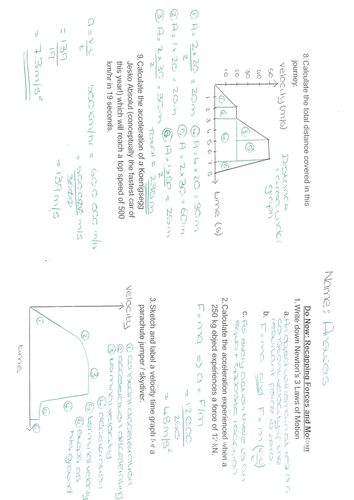 Name: Answers
Do Now: Recapping Forces and Motion
1. Write down Newton's 3 Laws of Motion
a. An object will remain at rest or a
constant velocity if the
resultant force is zero
b. F=ma and
c. For every action there is an
2. Calculate the acceleration experienced when a
250 kg object experiences a force of 12 kN.
F=ma => a = F/m
= 12000
250
= 48m/s²
3. Sketch and label a velocity time graph for a
parachute jumper / skydiver.
velocity
time
① ② ③ ④ ⑤ ⑥
① constant acceleration
② acceleration decreasing
③ terminal velocity
④ deceleration
⑤ terminal velocity
⑥ the ground
8. Calculate the total distance covered in this
journey.
velocity (m/s)
50
40
30
20
10
1 2 3 4 5 6
time (s)
Distance
= area under
graph
① A = 2 x 20 = 20m
2
② A = 1 x 20 = 20m
③ A = 2 x 30 = 30m
2
④ A = 4 x 20 = 80m
⑤ A = 2 x 30 = 60m
⑥ A = 1 x 50 = 25m
2
Total = 235m
9. Calculate the acceleration of a Koenigsegg
Jesko Absolut (conceptually the fastest car of
this year!) which will reach a top speed of 500
km/hr in 19 seconds.
500 km/hr = 500 000 m/h
= 500 000 m/s
3600
= 139 m/s
= 139
19
= 7.3m/s²